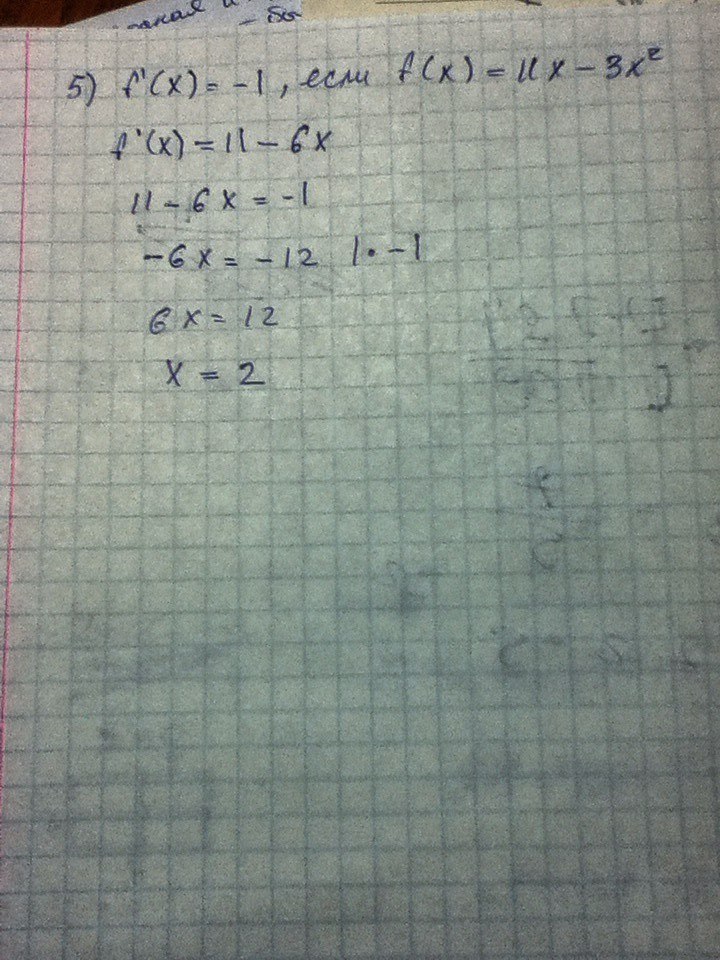 5) f'(x) = -1, если f(x) = 11x - 3x²
f'(x) = 11 - 6x
11 - 6x = -1
-6x = -12 | · -1
6x = 12
x = 2